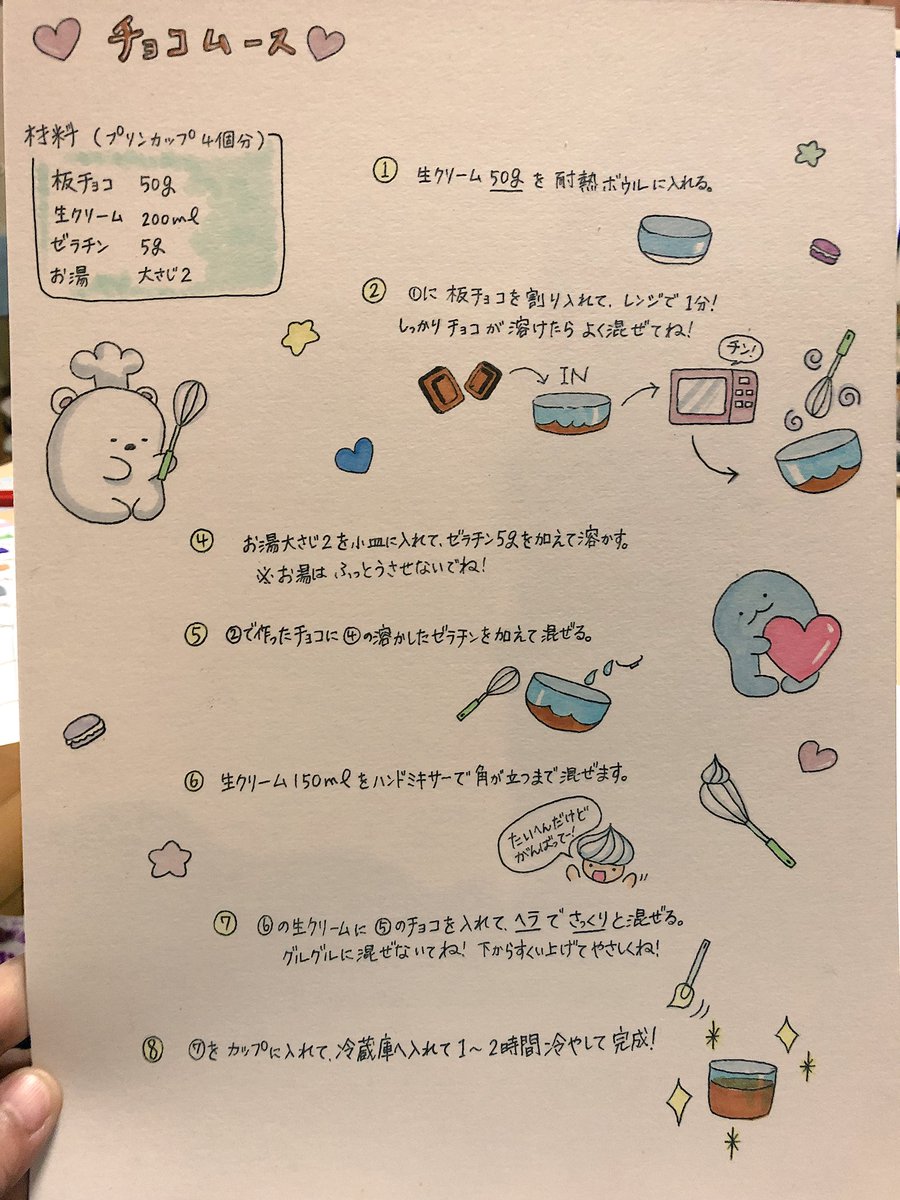 チョコムース
材料(プリンカップ4個分)
板チョコ 50g
生クリーム 200ml
ゼラチン 5g
お湯 大さじ2
① 生クリーム50gを耐熱ボウルに入れる。
② ①に板チョコを割り入れて、レンジで1分!
しっかりチョコが溶けたらよく混ぜてね!
IN
チン!
④ お湯大さじ2を小皿に入れて、ゼラチン5gを加えて溶かす。
※お湯はふっとうさせないでね!
⑤ ②で作ったチョコに④の溶かしたゼラチンを加えて混ぜる。
⑥ 生クリーム150mlをハンドミキサーで角が立つまで混ぜます。
たいへんだけど
がんばってー!
⑦ ⑥の生クリームに⑤のチョコを入れて、ヘラでさっくりと混ぜる。
グルグルに混ぜないでね!下からすくい上げてやさしくね!
⑧ ⑦をカップに入れて、冷蔵庫へ入れて1〜2時間冷やして完成!